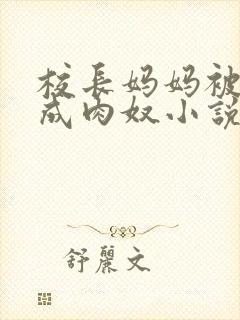 校長妈妈被
成肉奴小說
舒麗文